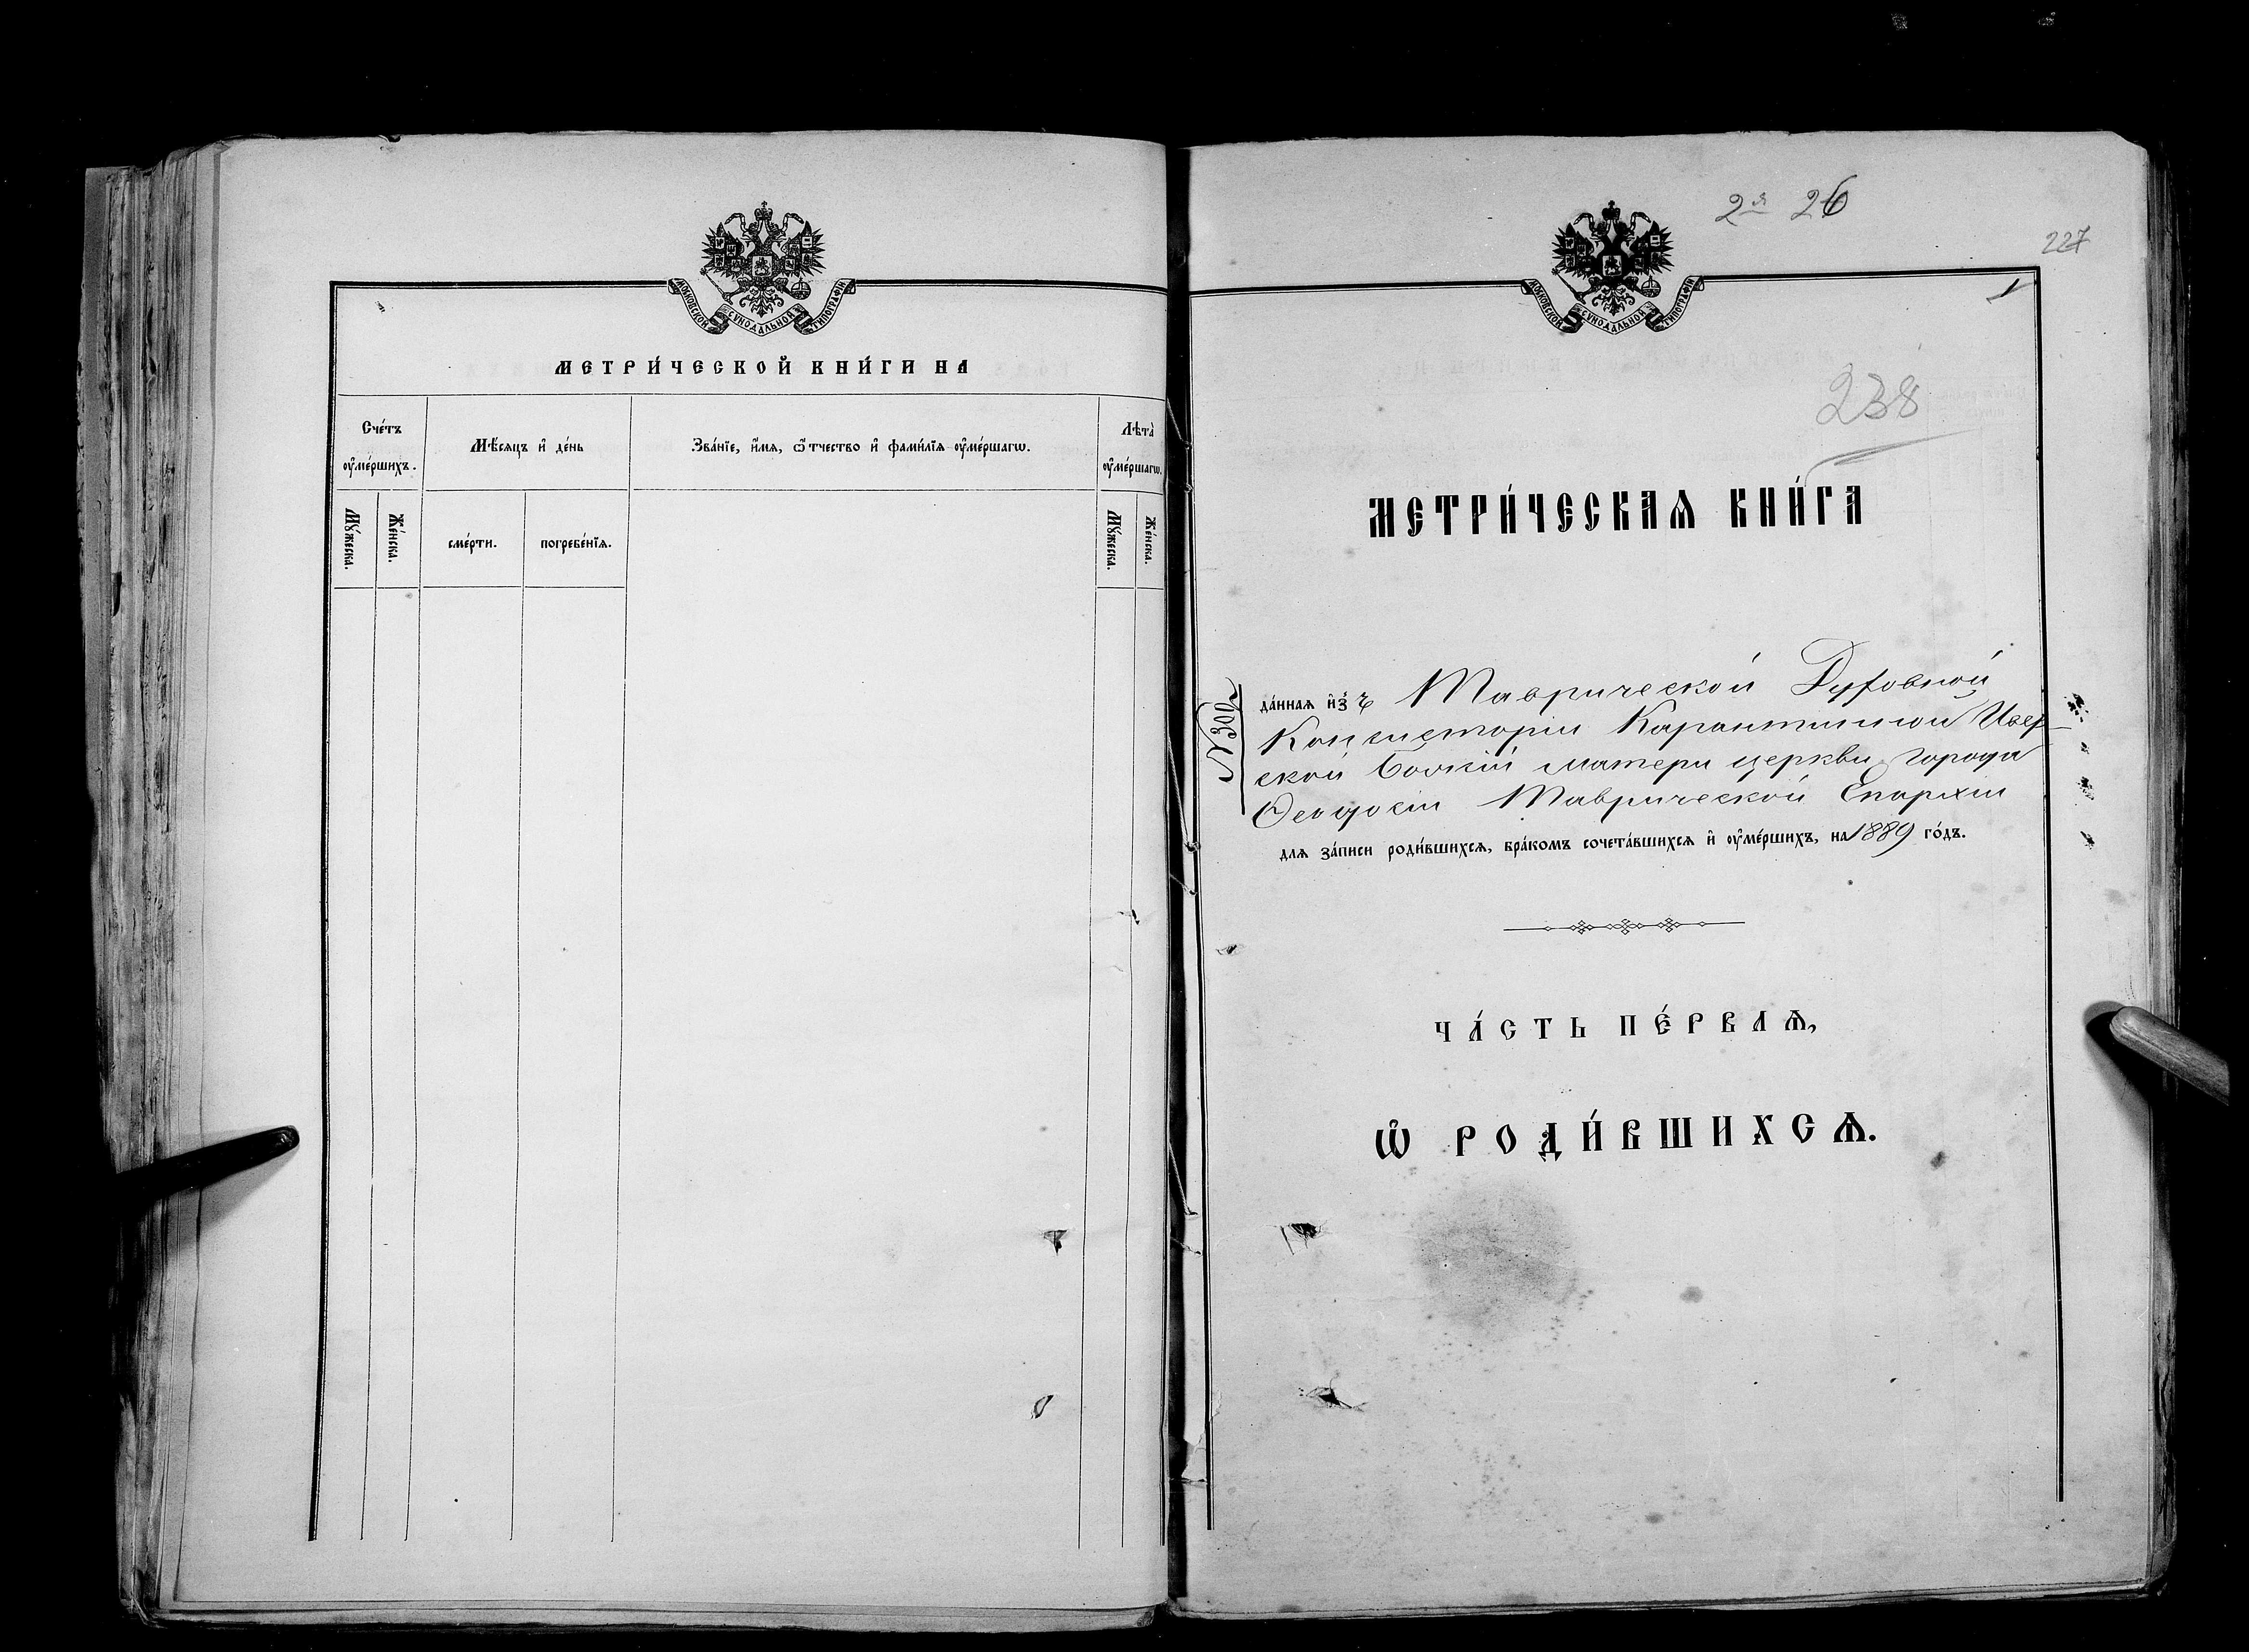 МОСКОВСКОЙ СѴНОДАЛЬНОЙ ТИПОГРАФІИ
МЕТРИ́ЧЕСКОЙ КНИ́ГИ НА
Сче́тъ ᲂу҆ме́ршихъ.
Мѣ́сяцъ и҆ де́нь
Зва́нїе, и҆́мѧ, ѻ҆́тчество и҆ фами́лїѧ ᲂу҆ме́ршагѡ.
Лѣ́та ᲂу҆ме́ршагѡ.
Мꙋ́жеска.
Же́нска.
сме́рти.
погребе́нїѧ.
Мꙋ́жеска.
Же́нска.
2я 26
227
1
МОСКОВСКОЙ СѴНОДАЛЬНОЙ ТИПОГРАФІИ
238
МЕТРИ́ЧЕСКАѦ КНИ́ГА
№300
да́ннаѧ и҆зъ Таврической Духовной
Консисторіи Карантинной Ивер-
ской Божіей матери церкви города
Ѳеодосіи Таврической Епархіи
для за́писи роди́вшихсѧ, бра́комъ сочета́вшихсѧ и҆ ᲂу҆ме́ршихъ, на 1889 го́дъ.
ЧА́СТЬ ПЕ́РВАѦ,
Ѡ҆ РОДИ́ВШИХСѦ.